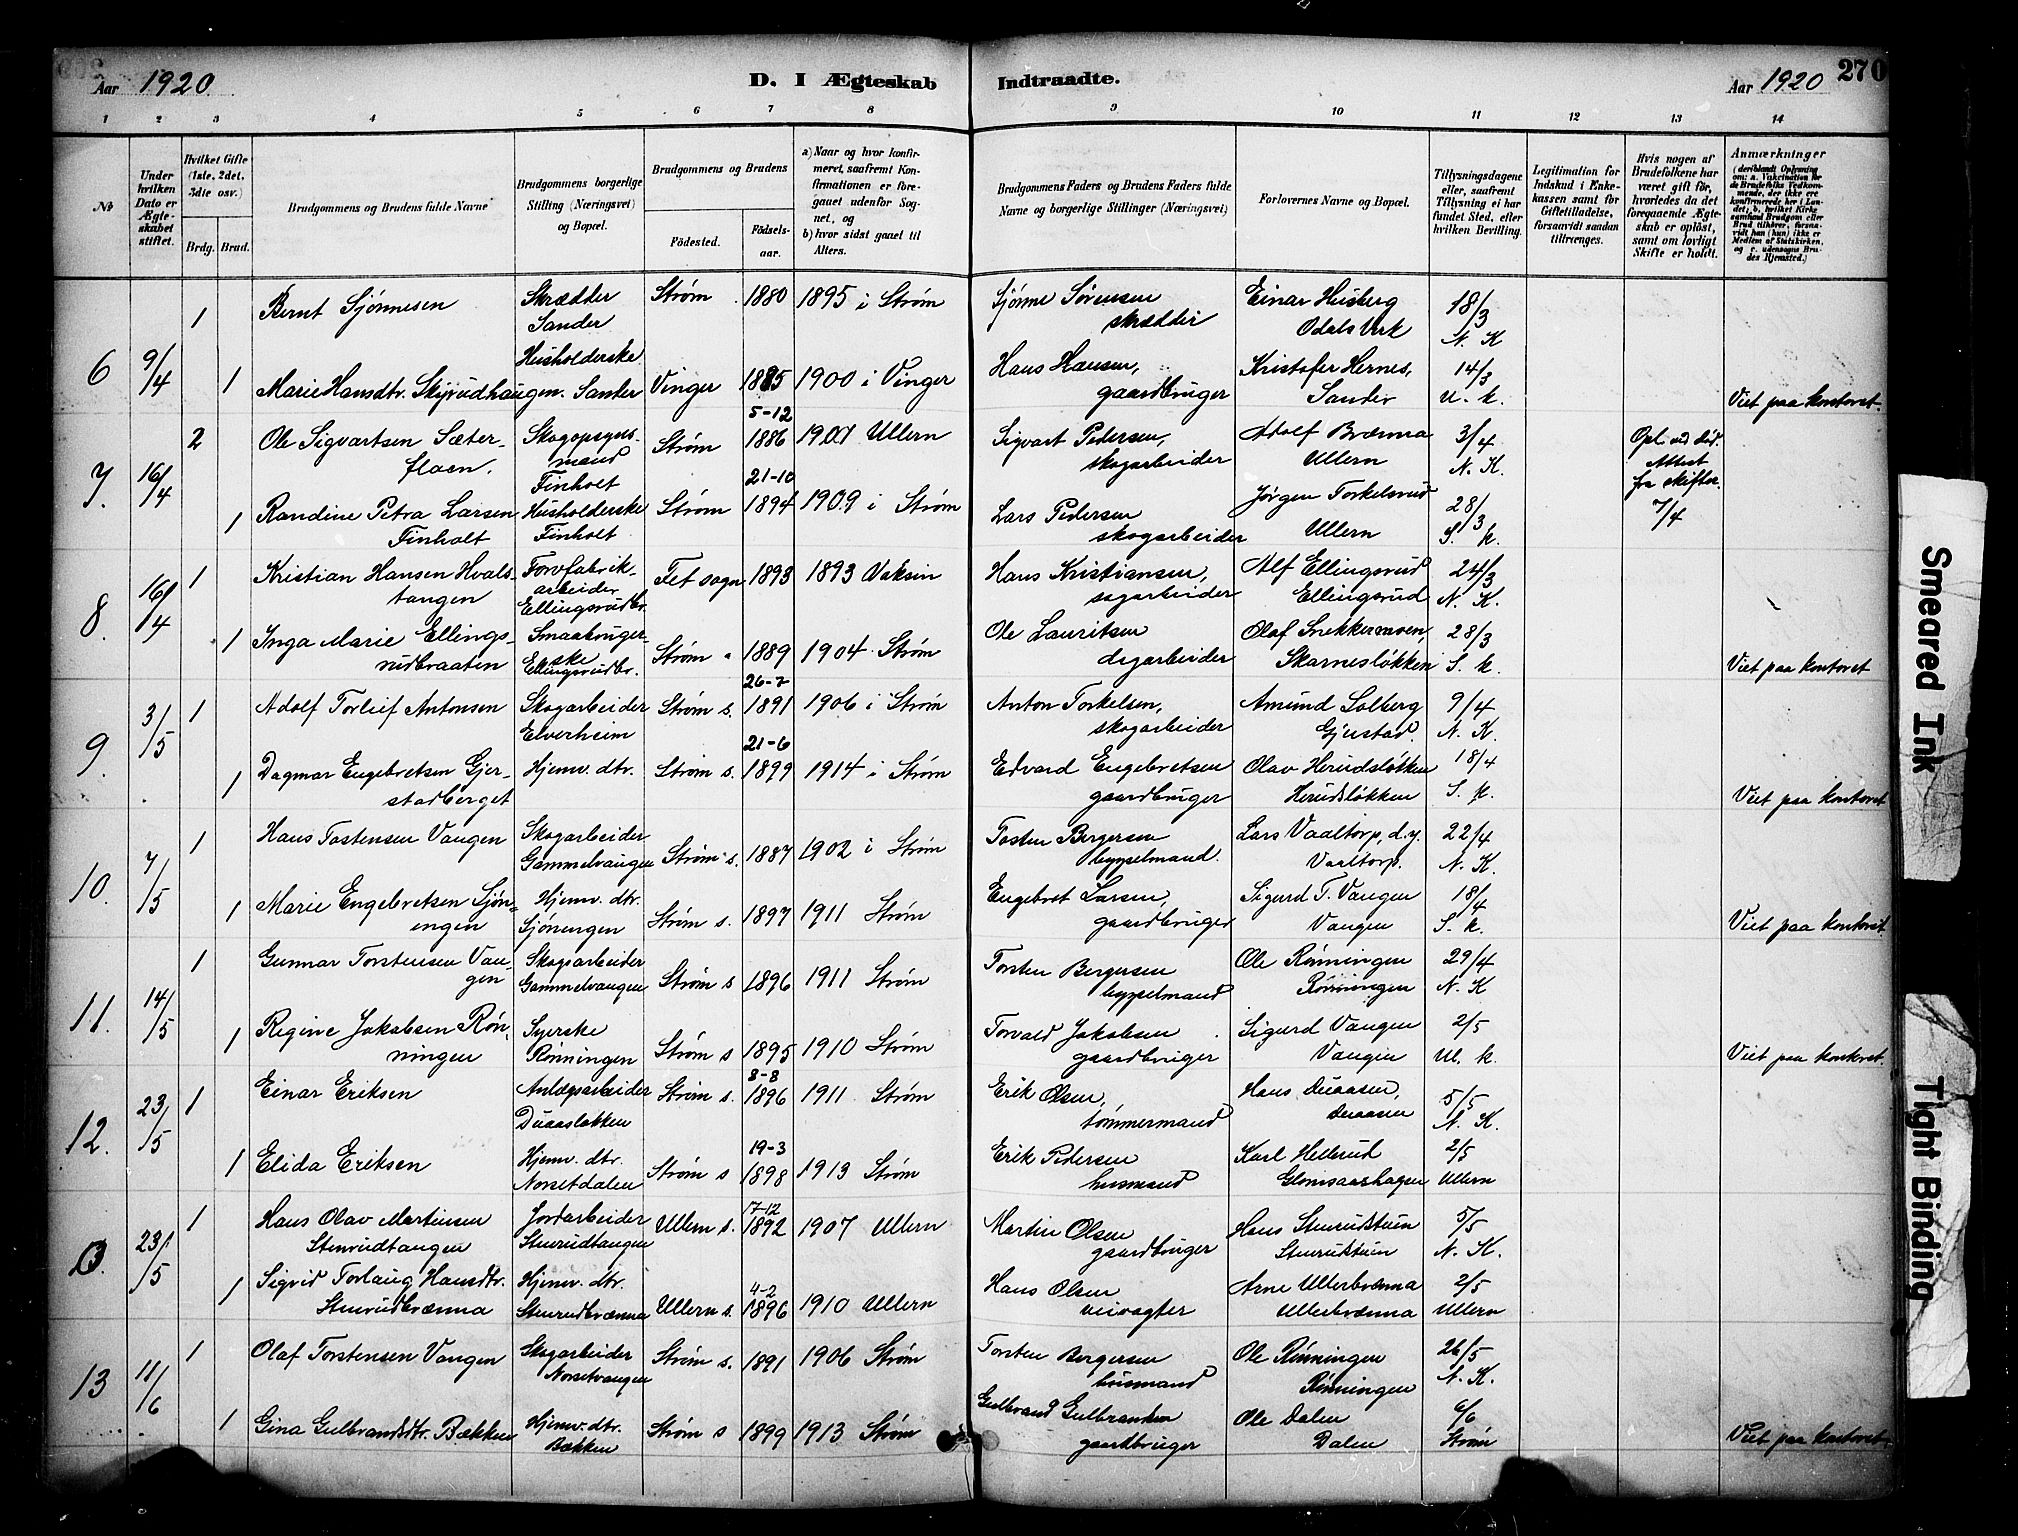 Aar 1920.
D. I Ægteskab Indtraadte.
Aar 1920
270
1 2 3 4 5 6 7 8 9 10 11 12 13 14
№
Under hvilken Dato er Ægteskabet stiftet.
Hvilket Gifte (1ste, 2det, 3die osv.)
Brdg. Brud.
Brudgommens og Brudens fulde Navne
Brudgommens borgerlige Stilling (Næringsvei) og Bopæl.
Brudgommens og Brudens
Födested. Födsels-aar.
a) Naar og hvor konfirmeret, saafremt Konfirmationen er foregaaet udenfor Sognet, og
b) hvor sidst gaaet til Alters.
Brudgommens Faders og Brudens Faders fulde Navne og borgerlige Stillinger (Næringsvei)
Forlovernes Navne og Bopæl.
Tillysningsdagene eller, saafremt Tillysning ei har fundet Sted, efter hvilken Bevilling.
Legitimation for Indskud i Enkekassen samt for Giftetilladelse, forsaavidt saadan tiltrænges.
Hvis nogen af Brudefolkene har været gift för, hvorledes da det foregaaende Ægteskab er oplöst, samt om lovligt Skifte er holdt.
Anmærkninger
(deriblandt Oplysning om: a. Vakcination for de Brudefolks Vedkommende, der ikke ere konfirmerede her i Landet; b. hvilket Kirkesamfund Brudgom eller Brud tilhører, forsaavidt han (hun) ikke er Medlem af Statskirken, og c. udensogns Brudes Hjemsted.)
6 9/4 1 Bernt Sjønnesen Skrædder Sander Strøm 1880 1895 i Strøm Sjønne Sørensen skrædder Einar Husberg Odals Verk 18/3 N. K
1 Marie Hansdtr. Skyrudhaugen. Husholderske Sander Vinger 1885 1900 i Vinger Hans Hansen, gaardbruger Kristofer Hernes, Sander 14/3 U. k. Viet paa kontoret.
7. 16/4 2 Ole Sigvartsen Sæterfloen. Skogopsynsmand Finholt Strøm 5-12 1886 1901 Ullern Sigvart Pedersen, skogarbeider Adolf Brænna Ullern 3/4 N. K. Opl. ved död. Attest fra skifter. 7/4
1 Randine Petra Larsen Finholt Husholderske Finholt Strøm 21-10 1894 1909 i Strøm Lars Pedersen skogarbeider Jørgen Torkelsrud Ullern 28/3 S. k.
8. 16/4 1 Kristian Hansen Hvalstangen Torvfabrikarbeider Ellingsrudbr. Fet sogn 1893 1893 Vaksin Hans Kristiansen, sagarbeider Alf Ellingsrud Ellingsrud 24/3 N. K.
1 Inga Marie Ellingsrudbraaten Smaabrugerske Ellingsrudbr. Strøm 1889 1904 Strøm Ole Lauritsen dagarbeider Olaf Snekkermoen, Skarnesløkken 28/3 S. k. Viet paa kontoret
9. 3/5 1 Adolf Torlief Antonsen Skogarbeider Elverheim Strøm s. 26-7 1891 1906 i Strøm Anton Torkelsen, skogarbeider Amund Solberg Gjerstad. 9/4 N. K.
1 Dagmar Engebretsen Gjerstadberget Hjemv. dtr. Strøm s. 21-6 1899 1914 i Strøm Edvard Engebretsen gaardbruger Olav Herudsløkken Herudsløkken 18/4 S. k. Viet paa kontoret
10. 7/5 1 Hans Tostensen Vangen Skogarbeider Gammelvangen Strøm s. 1887 1902 i Strøm Tosten Bergersen bygselmand. Lars Vaaltorp, d.y. Vaaltorp. 22/4 N. K.
1 Marie Engebretsen Sjøningen Hjemv. dtr. Sjöningen Strøm s. 1897 1911 Strøm Engebret Larsen, gaardbruger Sigurd T. Vangen Vangen 18/4 S. k. Viet paa kontoret.
11. 14/5 1 Gunnar Torstensen Vangen Skogsarbeider Gammelvangen Strøm s 1896 1911 Strøm Torsten Bergersen bygselmand Ole Rønningen Rønningen 29/4 N. K
1 Regine Jakobsen Rønningen Syerske Rønningen Strøm s 1895 1910 Strøm Torvald Jakobsen gaardbruger Sigurd Vangen Vangen 2/5 Ul. k. Viet paa kontoret.
12. 23/5 1 Einar Eriksen Anlægsarbeider Duaasløkken Strøm s. 8-8 1896 1911 Strøm Erik Olsen, tømmermand Hans Duaasen, Duaasen 5/5 N. K.
1 Elida Eriksen Hjemv. dtr. Norsetdalen Strøm s 19-3 1898 1913 Strøm Erik Pedersen husmand Karl Hellerud Glomsaashagen 2/5 Ullern
13. 23/5 1 Hans Olav Martinsen Stenrudtangen Jordarbeider Stenrudtangen Ullern s. 7-12 1892 1907 Ullern Martin Olsen gaardbruger Hans Stenrudstuen Stenrudstuen 5/5 N. K.
1 Sigrid Torlaug Hansdtr. Stenrudbrænna Hjemv. dtr. Stenrudbrænna Ullern s. 4-2 1896 1910 Ullern Hans Olsen veivogter Arne Ullerbrænna Ullerbrænna 2/5 Ullern
13 11/6 1 Olaf Torstensen Vangen Skogarbeider Norsetvangen Strøm s. 1891 1906 Strøm Torsten Bergersen husmand Ole Rønningen Rønningen 26/5 N. K.
1 Gina Gulbrandsdtr. Bækken Hjemv. dtr. Bækken Strøm s 1899 1913 Strøm Gulbrand Gulbrandsen gaardbruger Ole Dalen Dalen 6/6 Strøm Viet paa kontoret
Smeared Ink
Tight Binding